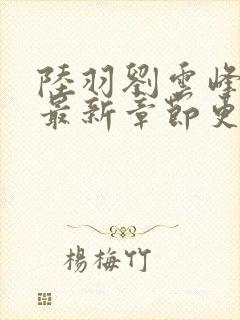 陸羽劉雲峰
最新章節更
楊梅竹